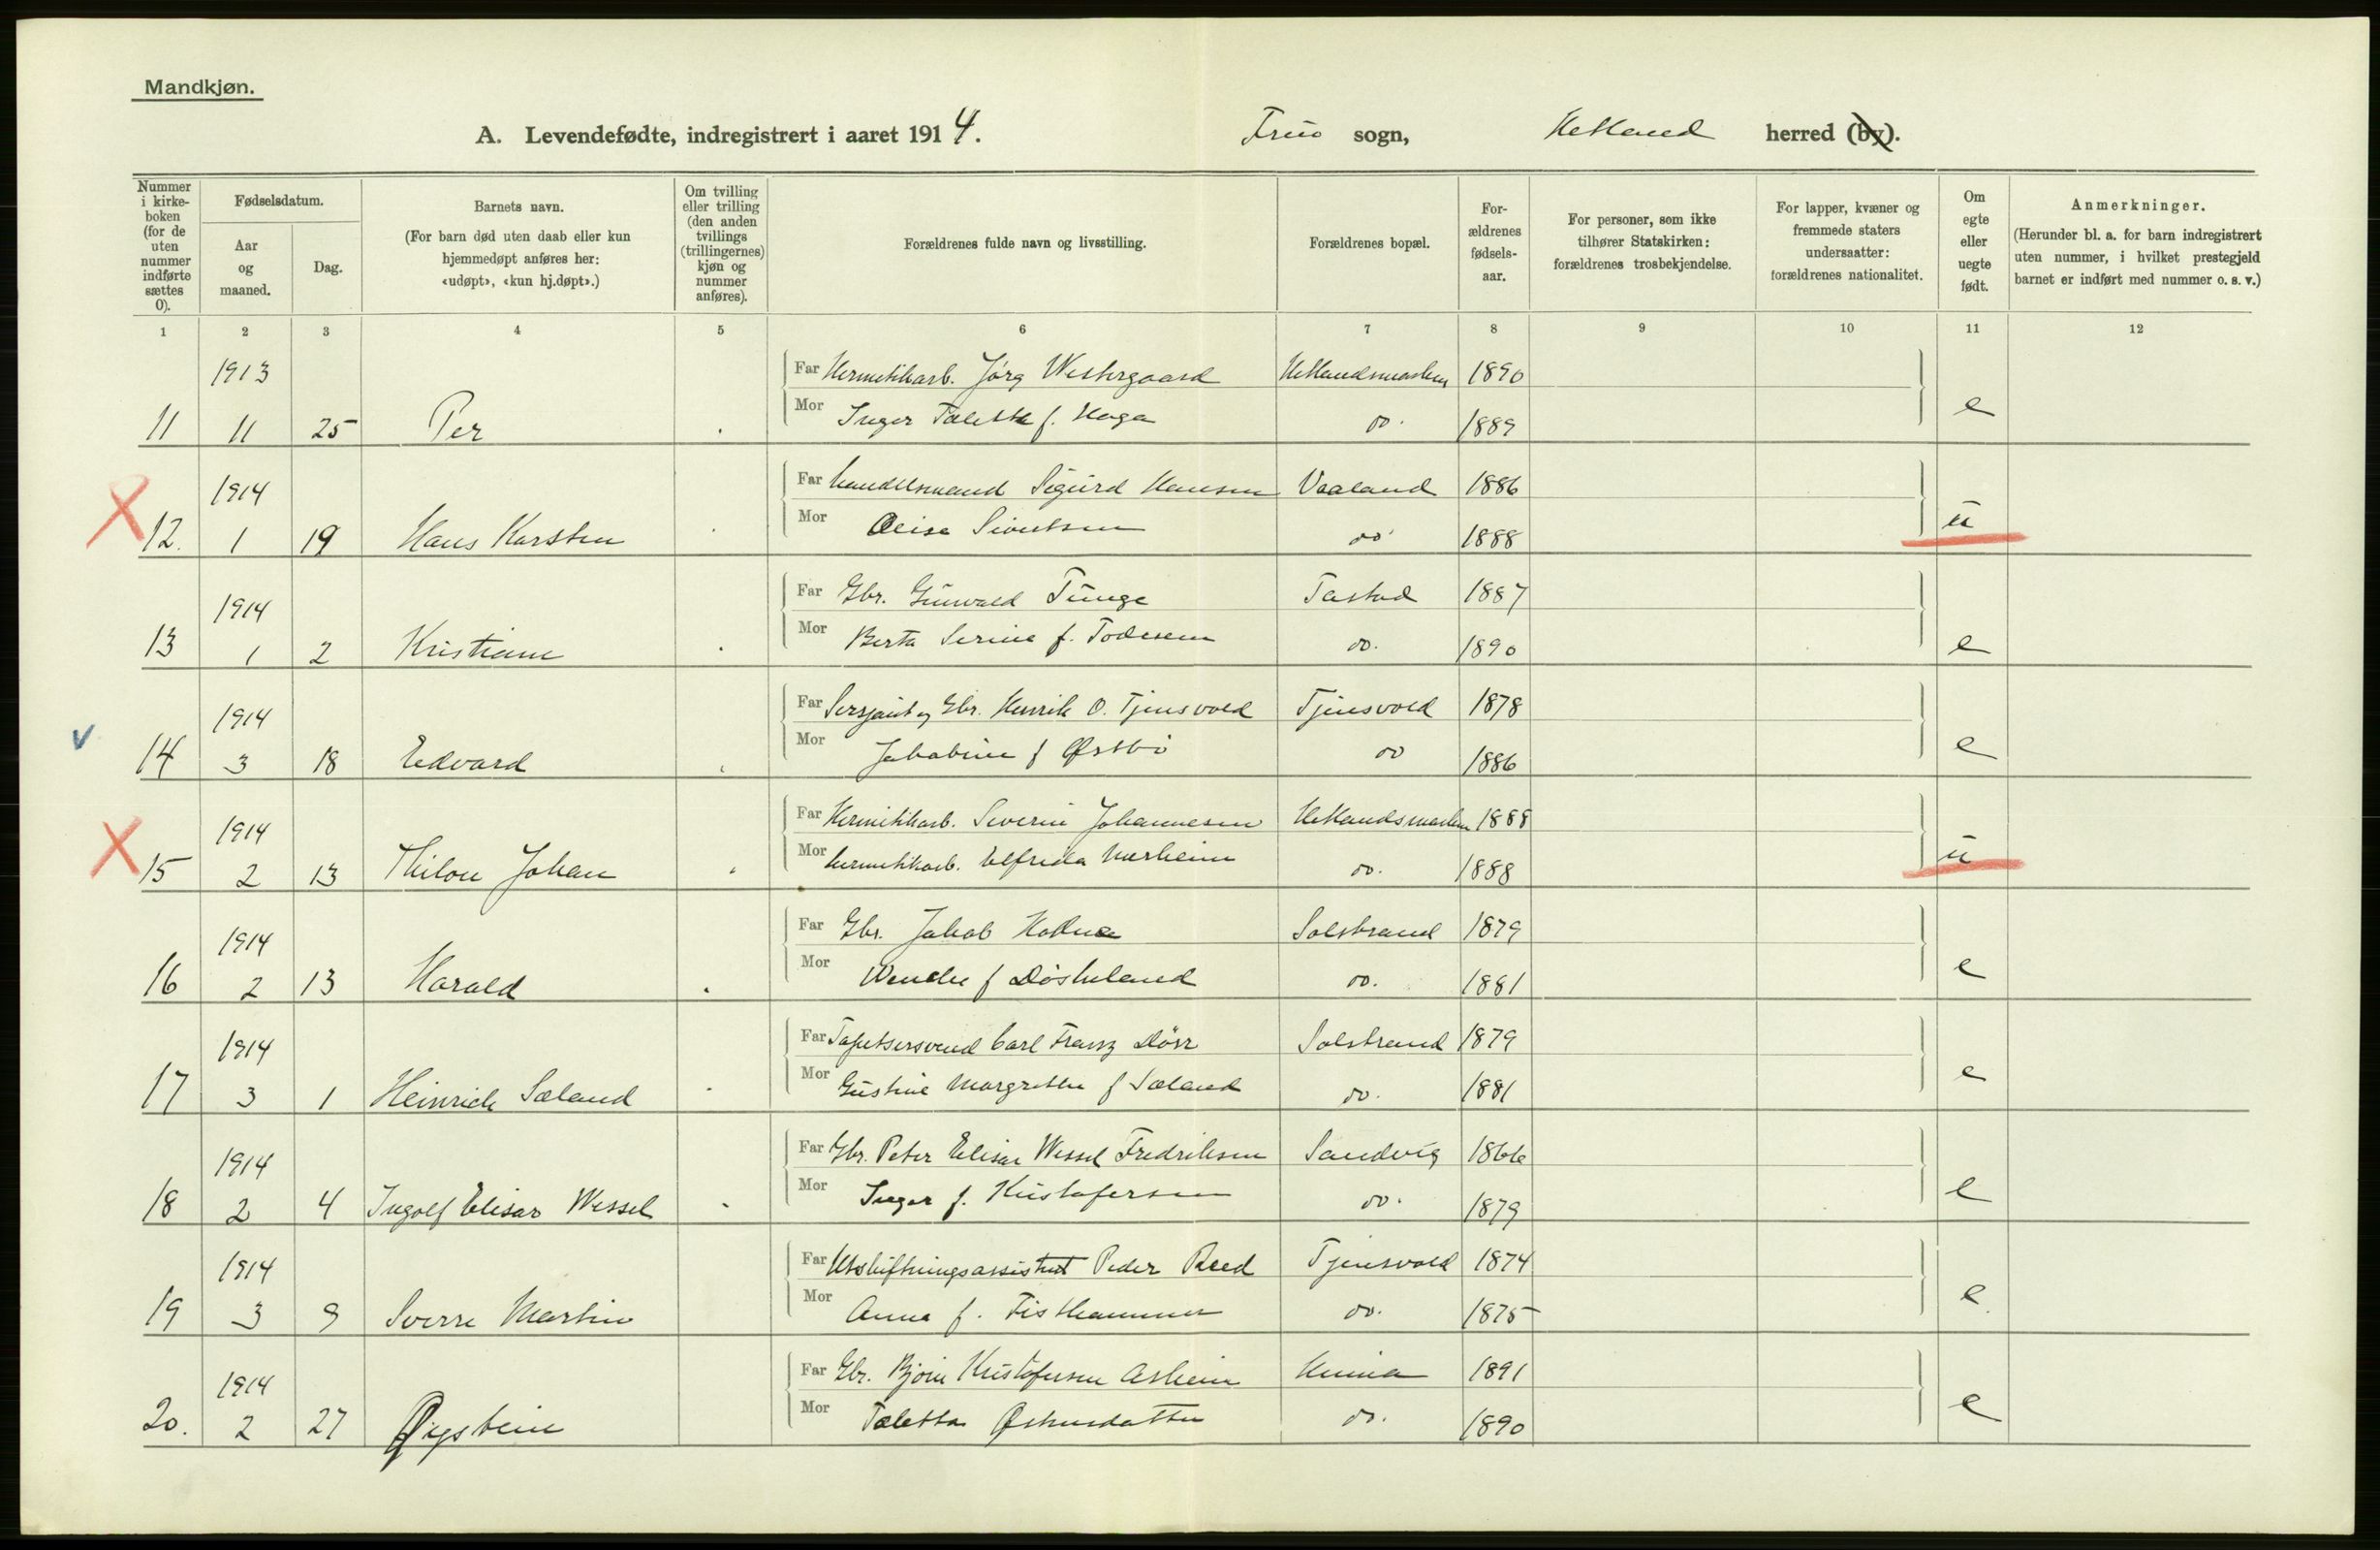 Mandkjøn.
A. Levendefødte, indregistrert i aaret 1914. Frue sogn, Hetland herred (by).
Nummer i kirke-boken (for de uten nummer indførte sættes 0).
Fødselsdatum.
Aar og maaned.
Dag.
Barnets navn.
(For barn død uten daab eller kun hjemmedøpt anføres her: «udøpt», «kun hj.døpt».)
Om tvilling eller trilling (den anden tvillings (trillingernes) kjøn og nummer anføres).
Forældrenes fulde navn og livsstilling.
Forældrenes bopæl.
For-ældrenes fødsels-aar.
For personer, som ikke tilhører Statskirken: forældrenes trosbekjendelse.
For lapper, kvæner og fremmede staters undersaatter: forældrenes nationalitet.
Om egte eller uegte født.
Anmerkninger.
(Herunder bl. a. for barn indregistrert uten nummer, i hvilket prestegjeld barnet er indført med nummer o. s. v.)
1 2 3 4 5 6 7 8 9 10 11 12
1913 Far Hermetikkarb. Jørg Westergaard Hetlandsmarken 1890
11 11 25 Per Mor Inger Talette f. Haga do. 1889 e
1914 Far Handelsmand Sigurd Hansen Vaaland 1886
12. 1 19 Hans Karsten Mor Sivertsen do 1888 u
1914 Far Gbr. Gunvald Tunge Tastad 1887
13 1 2 Kristian Mor Berta Serine f. do. 1890 e
1914 Far Sersjant og Gbr. Henrik O. Tjensvold Tjensvold 1878
v 14 3 18 Edvard Mor Jakobine f Østbø do 1886 e
1914 Far Hermetikkarb. Severin Johannesen Hetlandsmarken 1888
15 2 13 Thilou Johan Mor hermetikkarb. Elfrida do. 1888 u
1914 Far Gbr. Jakob Solstrand 1879
16 2 13 Harald Mor Wenche f Døskeland do. 1881 e
1914 Far Tapetsersvend Carl Franz Dörr Solstrand 1879
17 3 1 Heinrich Sæland Mor Gustine Margrethe f Sæland do. 1881 e
1914 Far Gbr. Peter Elisar Wessel Fredriksen Sandvig 1866
18 2 4 Ingolf Elisar Wessel Mor Inger f. Kristofersen do. 1879 e
1914 Far Utskiftningsassistent Peder Reed Tjensvold 1874
19 3 9 Sverre Martin Mor Anna f. Fisthammer do. 1875 e
1914 Far Gbr. Bjørn Kristofersen Asheim Hinna 1891
20. 2 27 Øigstein Mor Taletta do. 1890 e